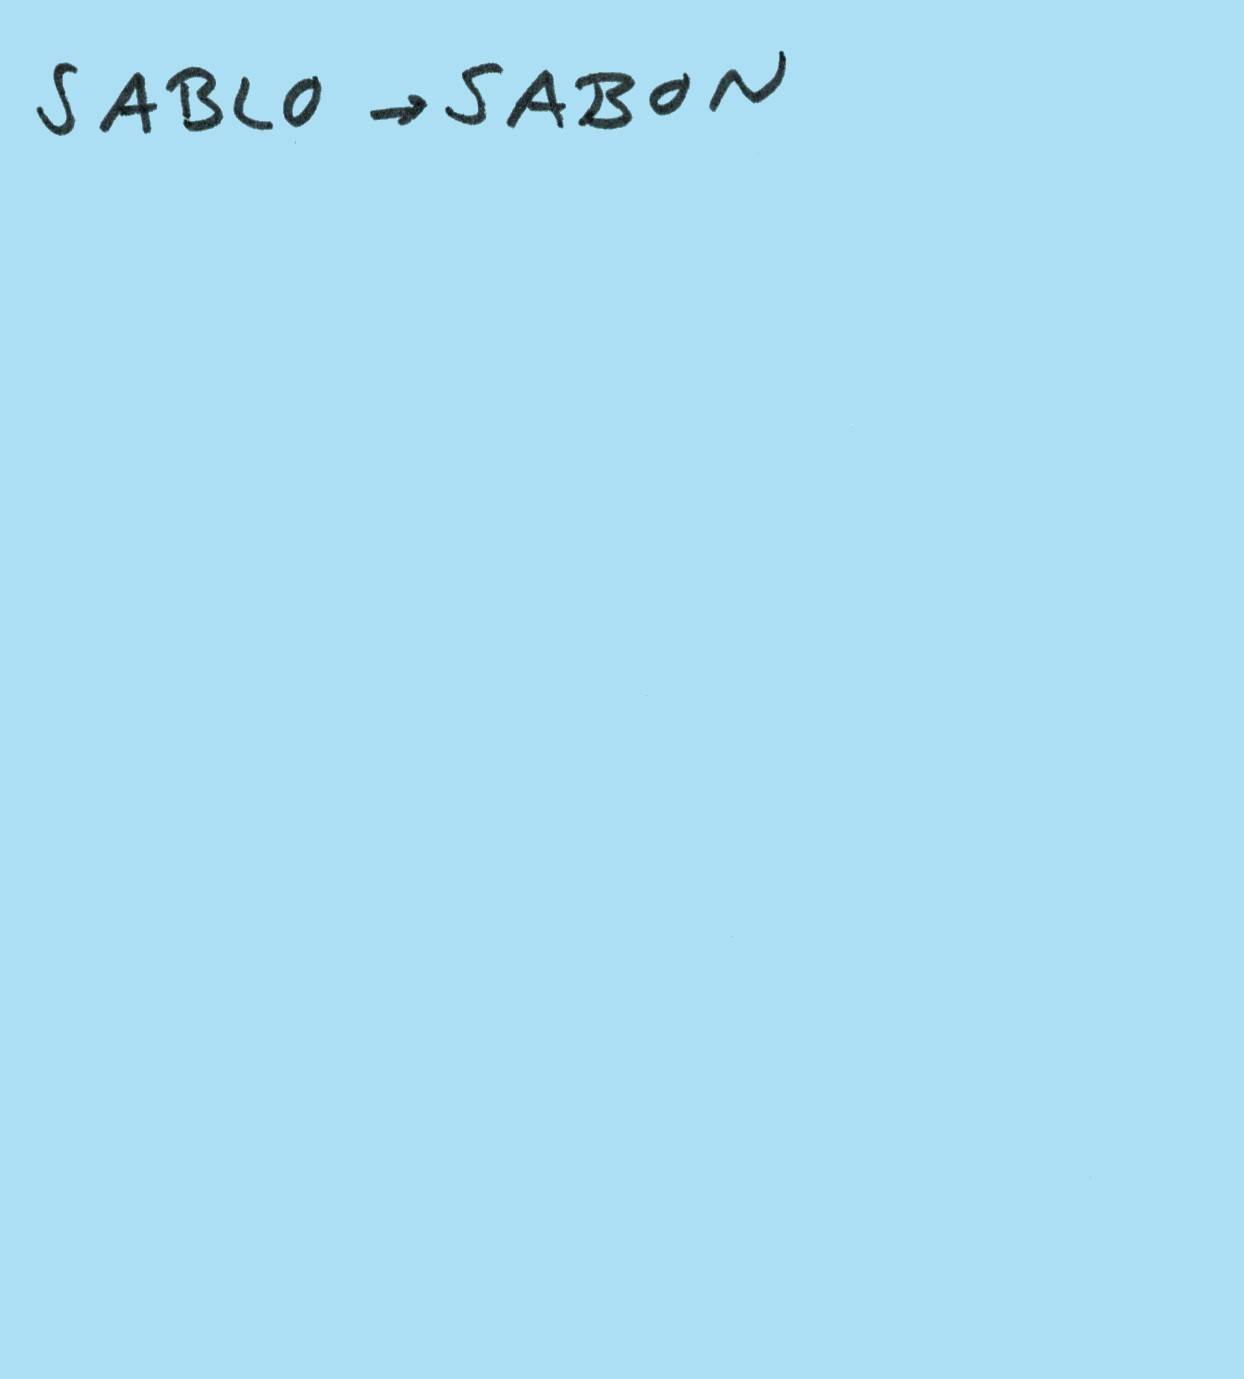 SABLO → SABON